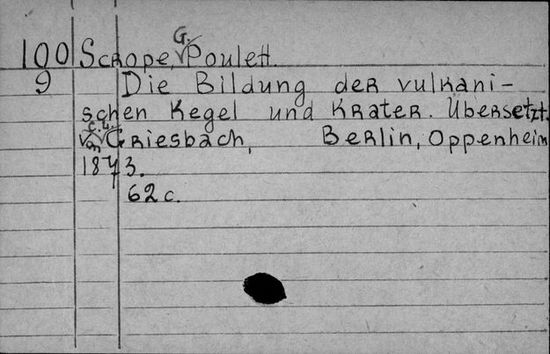 100 Scrope, G. Poulett.
9 Die Bildung der vulkani-
schen Kegel und Krater. Übersetzt.
von C. L. Griesbach, Berlin, Oppenheim
1873.
62 c.